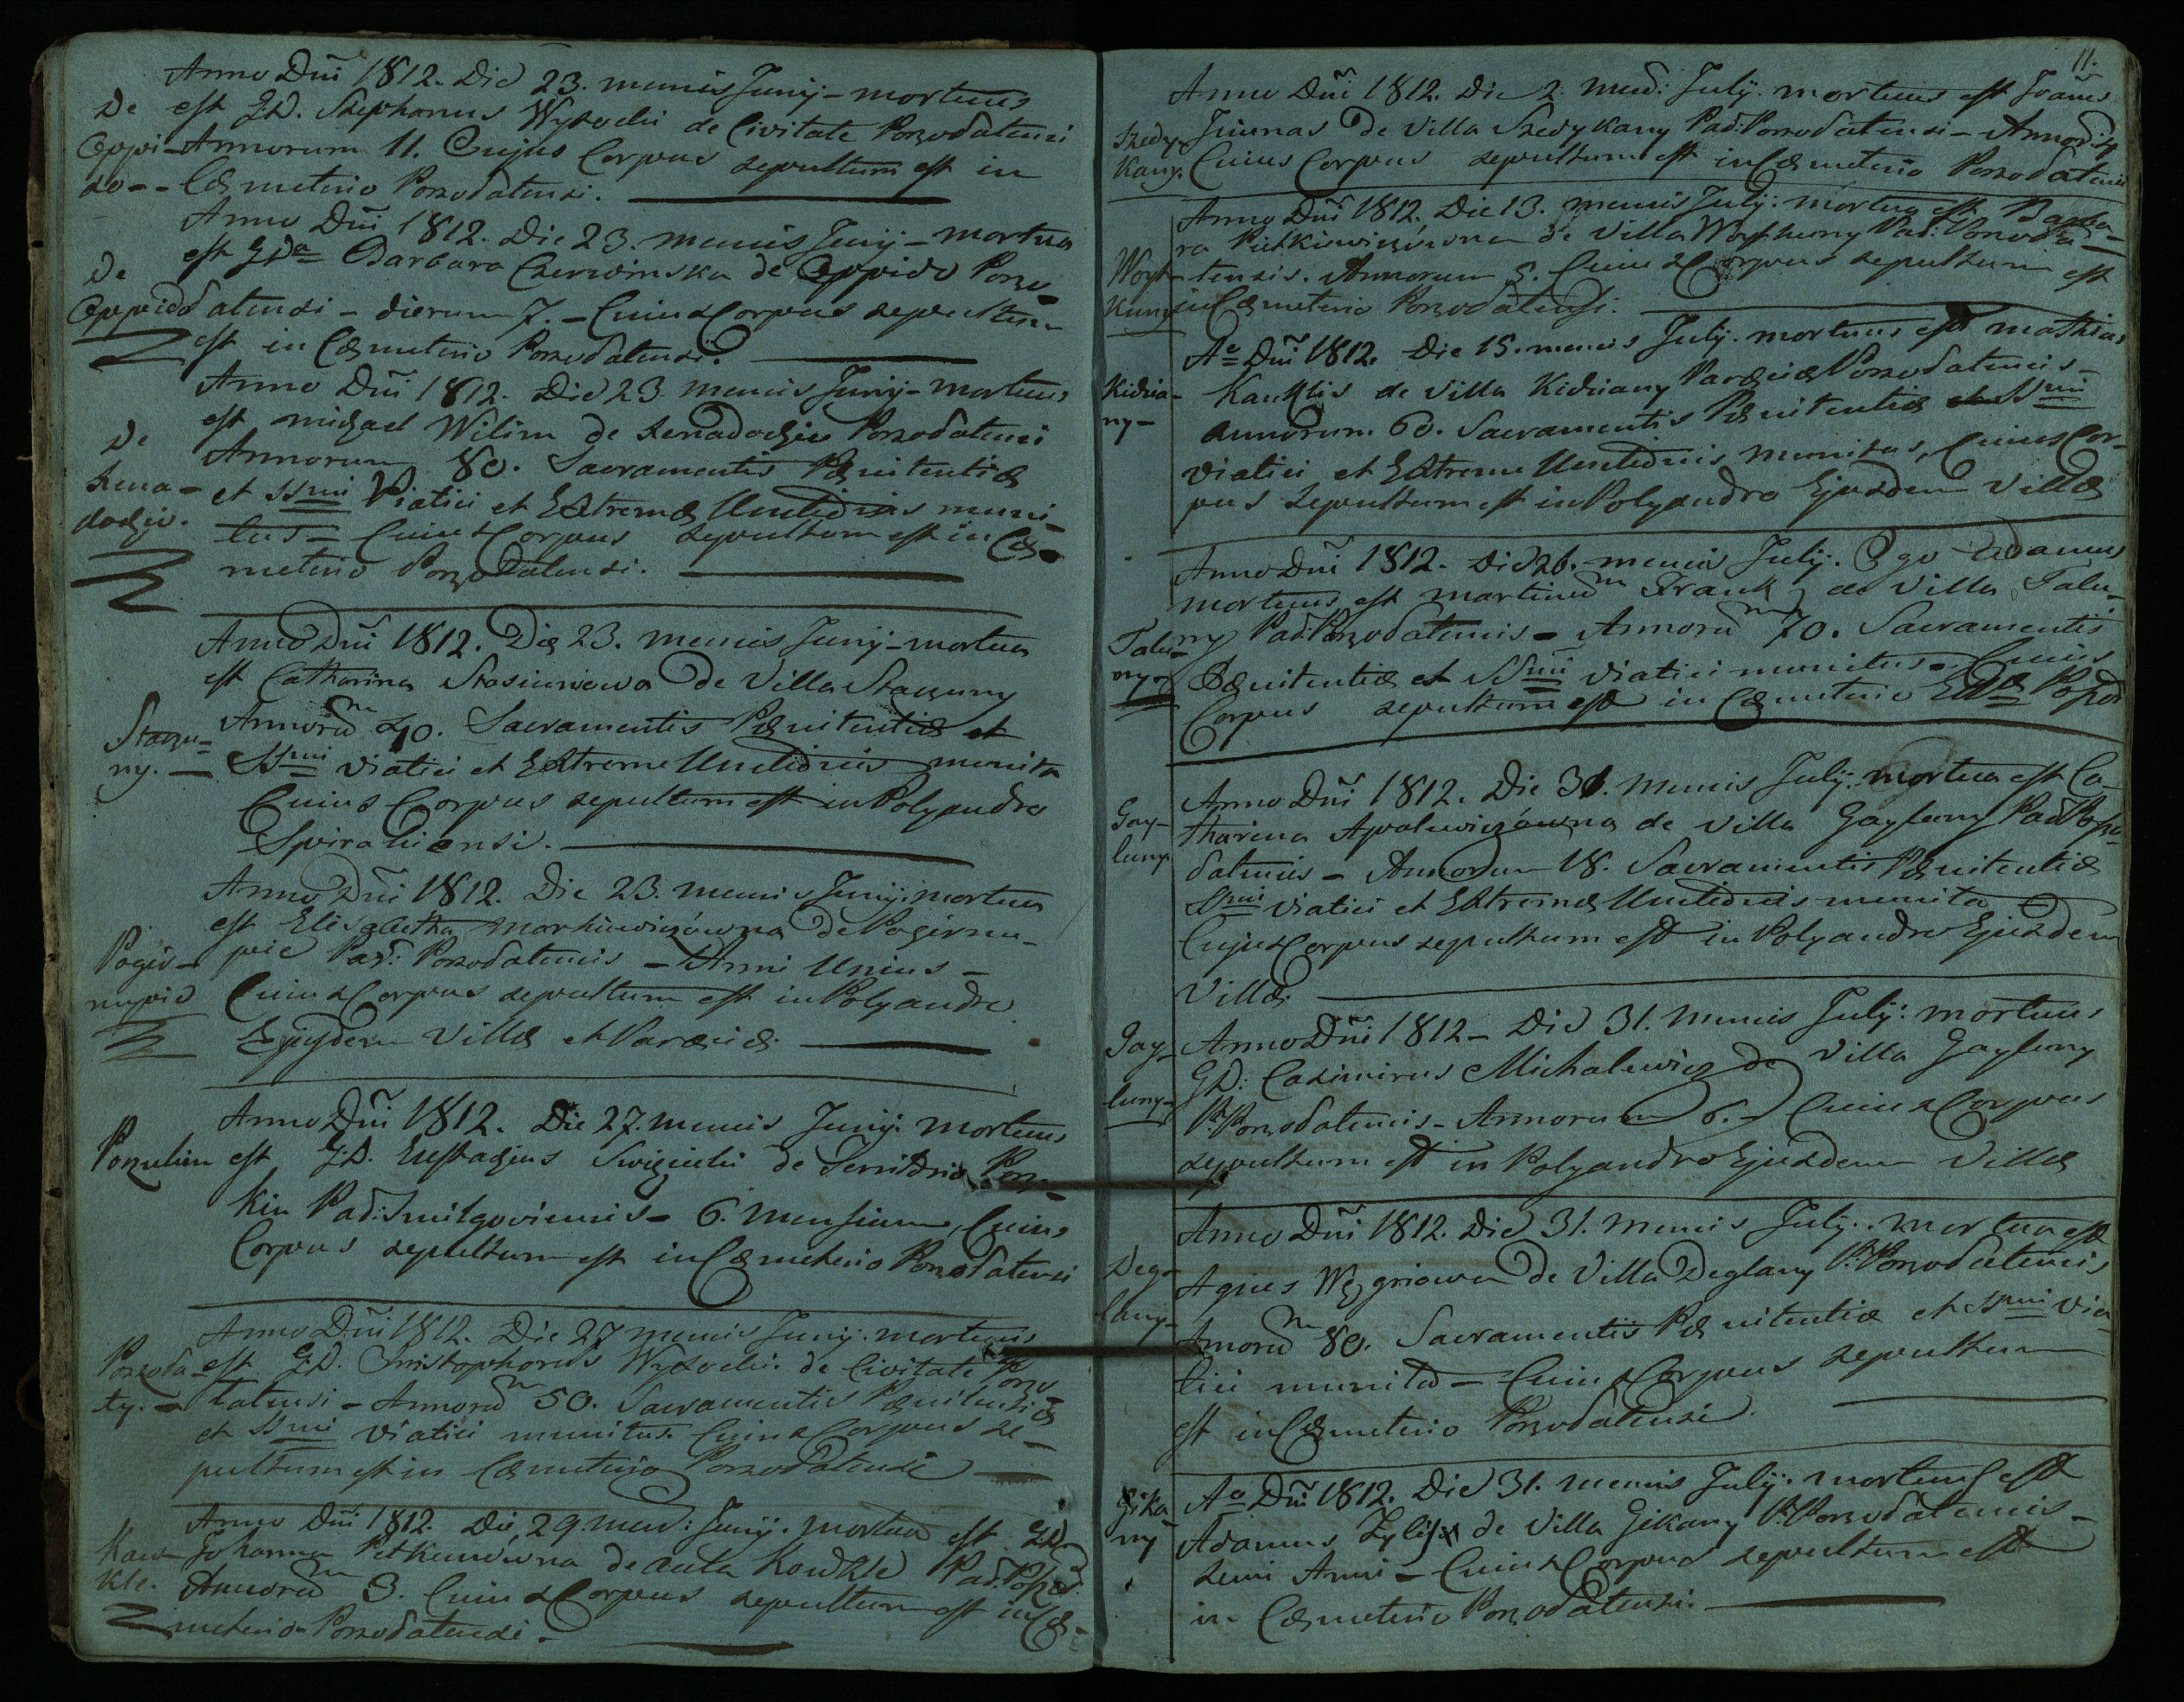 Anno Dñi 1812. Die 23. mensis Junij - mortuus
De est G.D. Stephanus Wysocki de Civitate Poszodatensi
Oppi- Annorum 11. Cujus Corpus sepultum est in
do - - Cæmeterio Poszodatensi.
Anno Dñi 1812. Die 23. mensis Junij - mortua
De est GDa Barbara Czerwinska de Oppido Poszo-
Oppido datensi - dierum 7. - Cuius Corpus sepultum
est in Cæmeterio Poszodatensi.
Anno Dñi 1812. Die 23. mensis Junij - mortuus
De est michael Wilim de Poszodatensi
Annorum 80. Sacramentis Pænitentiæ
et SSmi Viatici et Extremæ Unctionis muni-
tus - Cuius Corpus sepultum est in Cæ-
meterio Poszodatensi.
Anno Dñi 1812. Die 23. mensis Junij - mortua
est Catharina Stasiunowa de Villa Staczuny
Staczu- Annorum 40. Sacramentis Pænitentiæ et
ny. - SSmi Viatici et Extreme Unctionis munita
Cuius Corpus sepultum est in Polyandro
Spirakiensi.
Anno Dñi 1812. Die 23. mensis Junij: mortua
est Elisabetha Markiewiczówna de Pogirnu-
Pogir- pie Par: Poszodatensis - Anni Unius -
nupie Cuius Corpus sepultum est in Polyandro
Ejusdem Villæ et Paræciæ.
Anno Dñi 1812. Die 27. mensis Junij: mortuus
est G.D. Eustagius Swięcicki de Territorio Posz-
kin Par: Smilgoviensis - 6. Mensium, Cuius
Corpus sepultum est in Cæmeterio Poszodatensi
Anno Dñi 1812. Die 27 mensis Junij. mortuus
Poszoda- est G.D. Christophorus Wysocki de Civitate Poszo
ty. - datensi - Annorum 50. Sacramentis Pænitentiæ
et SSmi Viatici munitus. Cuius Corpus se-
pultum est in Cæmeterio Poszodatensi
Anno Dñi 1812. Die 29. men: Junij. mortua est GD
Kow- Johanna Petkunówna de aula Kowkle Par. Poszod.
kle. Annorum 3. Cuius Corpus sepultum est in Cæ-
meterio Poszodatensi.
11.
Anno Dñi 1812. Die 2. men: July. mortuus est Joañes
Szedy- Jiunas de Villa Szedykany Par: Poszodatensi - Annor:
kany. Cuius Corpus sepultum est in Cæmeterio Poszodatensi
Anno Dñi 1812. Die 13. mensis July: mortua est Barba-
ra Pietkiewiczówna de Villa Woyszkuny Par: Poszoda-
Woysz- tensis. Annorum 5. Cuius Corpus sepultum est
kuny in Cæmeterio Poszodatensi.
Ao Dñi 1812. Die 15. mensis July. mortuus est mathias
Kidzia- Kauklis de Villa Kidziany Paræciæ Poszodatensis -
ny - Annorum 60. Sacramentis Pænitentiæ et SSmi
Viatici et Extreme Unctionis munitus, Cuius Cor-
pus sepultum est in Polyandro Ejusdem Villæ
Anno Dñi 1812. Die 26. mensis July. Ego Adamus
mortuus est martinus Frank de Villa Talu-
Talu- ny Par: Poszodatensis - Annorum 70. Sacramentis
ny - Pænitentiæ et SSmi Viatici munitus - Cuius
Corpus sepultum est in Cæmeterio Ecclæ Poszod
Anno Dñi 1812. Die 31. mensis July. mortua est Ca-
Gay- tharina Apolewiczówna de Villa Gayluny Par Poszo-
luny. datensis - Annorum 18. Sacramentis Pænitentiæ
SSmi Viatici et Extremæ Unctionis munita
Cujus Corpus sepultum est in Polyandro Ejusdem
Villæ.
Anno Dñi 1812 - Die 31. mensis July: mortuus
Gay- G.D: Casimirus Michalewicz de Villa Gayluny
luny - P. Poszodatensis - Annorum 6. - Cuius Corpus
sepultum est in Polyandro Ejusdem Villæ
Anno Dñi 1812. Die 31. mensis July. mortua est
Deg- Agnes Węgriowa de Villa Deglany P. Poszodatensis
lany - Annorum 80. Sacramentis Pænitentiæ et SSmi Via-
tici munita - Cuius Corpus sepultum
est in Cæmeterio Poszodatensi.
Ao Dñi 1812. Die 31. mensis July. mortuus est
Gika- Adamus Zylis de Villa Gikany P. Poszodatensis -
ny semi Anni - Cuius Corpus sepultum est
in Cæmeterio Poszodatensi.